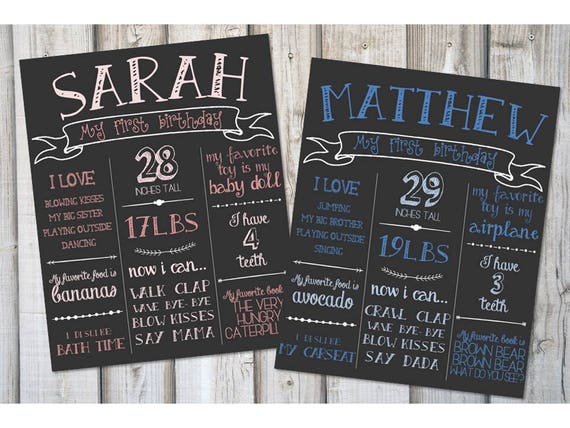 SARAH
My first birthday
I LOVE
BLOWING KISSES
MY BIG SISTER
PLAYING OUTSIDE
DANCING
My favorite food is
bananas
I DISLIKE
BATH TIME
28
INCHES TALL
17LBS
now i can...
WALK CLAP
WAVE BYE-BYE
BLOW KISSES
SAY MAMA
my favorite
toy is my
baby doll
I have
4
teeth
My favorite book is
THE VERY
HUNGRY
CATERPILL
MATTHEW
My first birthday
I LOVE
JUMPING
MY BIG BROTHER
PLAYING OUTSIDE
SINGING
My favorite food is
avocado
I DISLIKE
MY CARSEAT
29
INCHES TALL
19LBS
now i can...
CRAWL CLAP
WAVE BYE-BYE
BLOW KISSES
SAY DADA
my favorite
toy is my
airplane
I have
3
teeth
My favorite book is
BROWN BEAR
BROWN BEAR
WHAT DO YOU SEE?